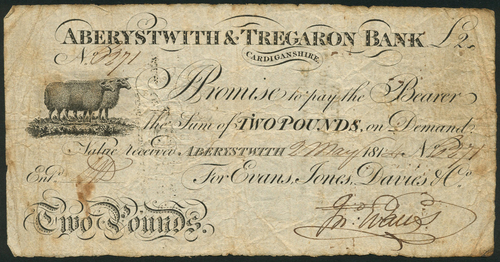 ABERYSTWITH & TREGARON BANK £2.
CARDIGANSHIRE.
N. 2371
I Promise to pay the Bearer
The Sum of TWO POUNDS, on Demand
Value received ABERYSTWITH 2 May 181 N. 2371
Entd.
For Evans, Jones, Davies & Co.
Two Pounds. Jno. Evans